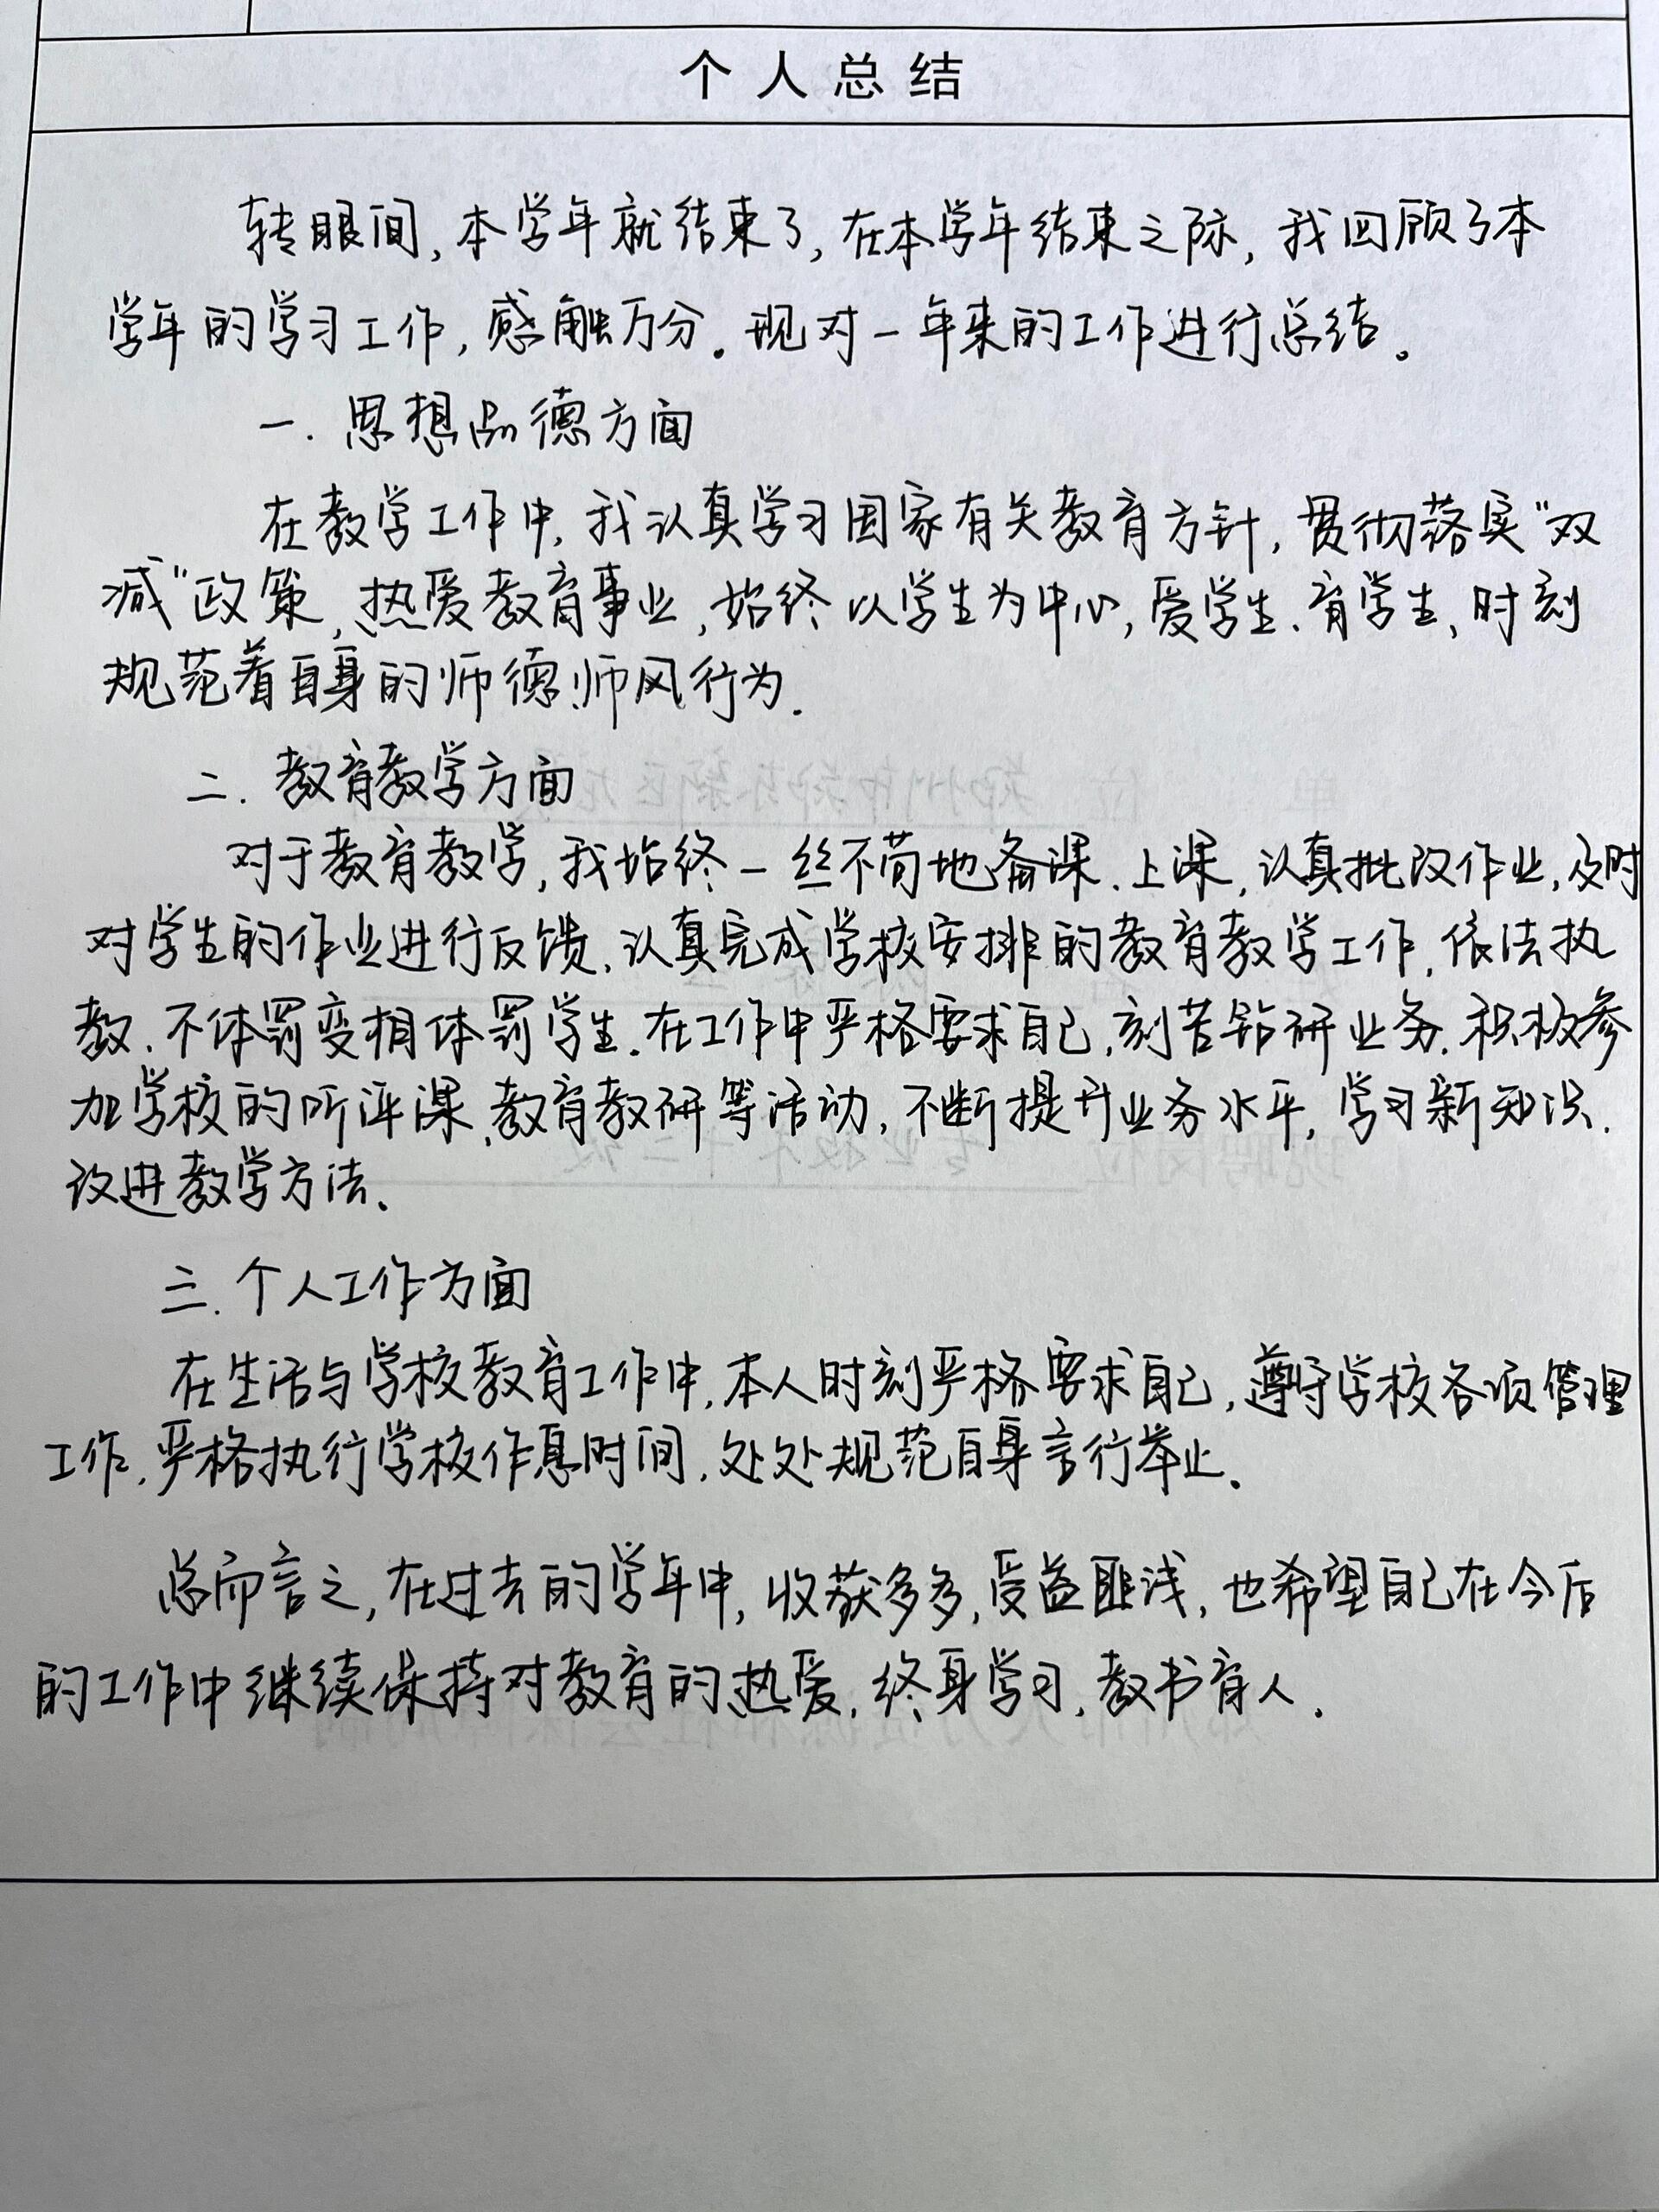 个人总结
转眼间,本学年就结束了,在本学年结束之际,我回顾了本
学年的学习工作,感触万分。现对一年来的工作进行总结。
一.思想品德方面
在教学工作中,我认真学习国家有关教育方针,贯彻落实“双
减”政策,热爱教育事业,始终以学生为中心,爱学生、育学生、时刻
规范着自身的师德师风行为.
二.教育教学方面
对于教育教学,我始终一丝不苟地备课、上课,认真批改作业,及时
对学生的作业进行反馈,认真完成学校安排的教育教学工作,依法执
教、不体罚变相体罚学生。在工作中严格要求自己,刻苦钻研业务.积极参
加学校的听评课、教育教研等活动,不断提升业务水平,学习新知识.
改进教学方法。
三.个人工作方面
在生活与学校教育工作中,本人时刻严格要求自己,遵守学校各项管理
工作,严格执行学校作息时间,处处规范自身言行举止。
总而言之,在过去的学年中,收获多多,受益匪浅,也希望自己在今后
的工作中继续保持对教育的热爱,终身学习,教书育人.